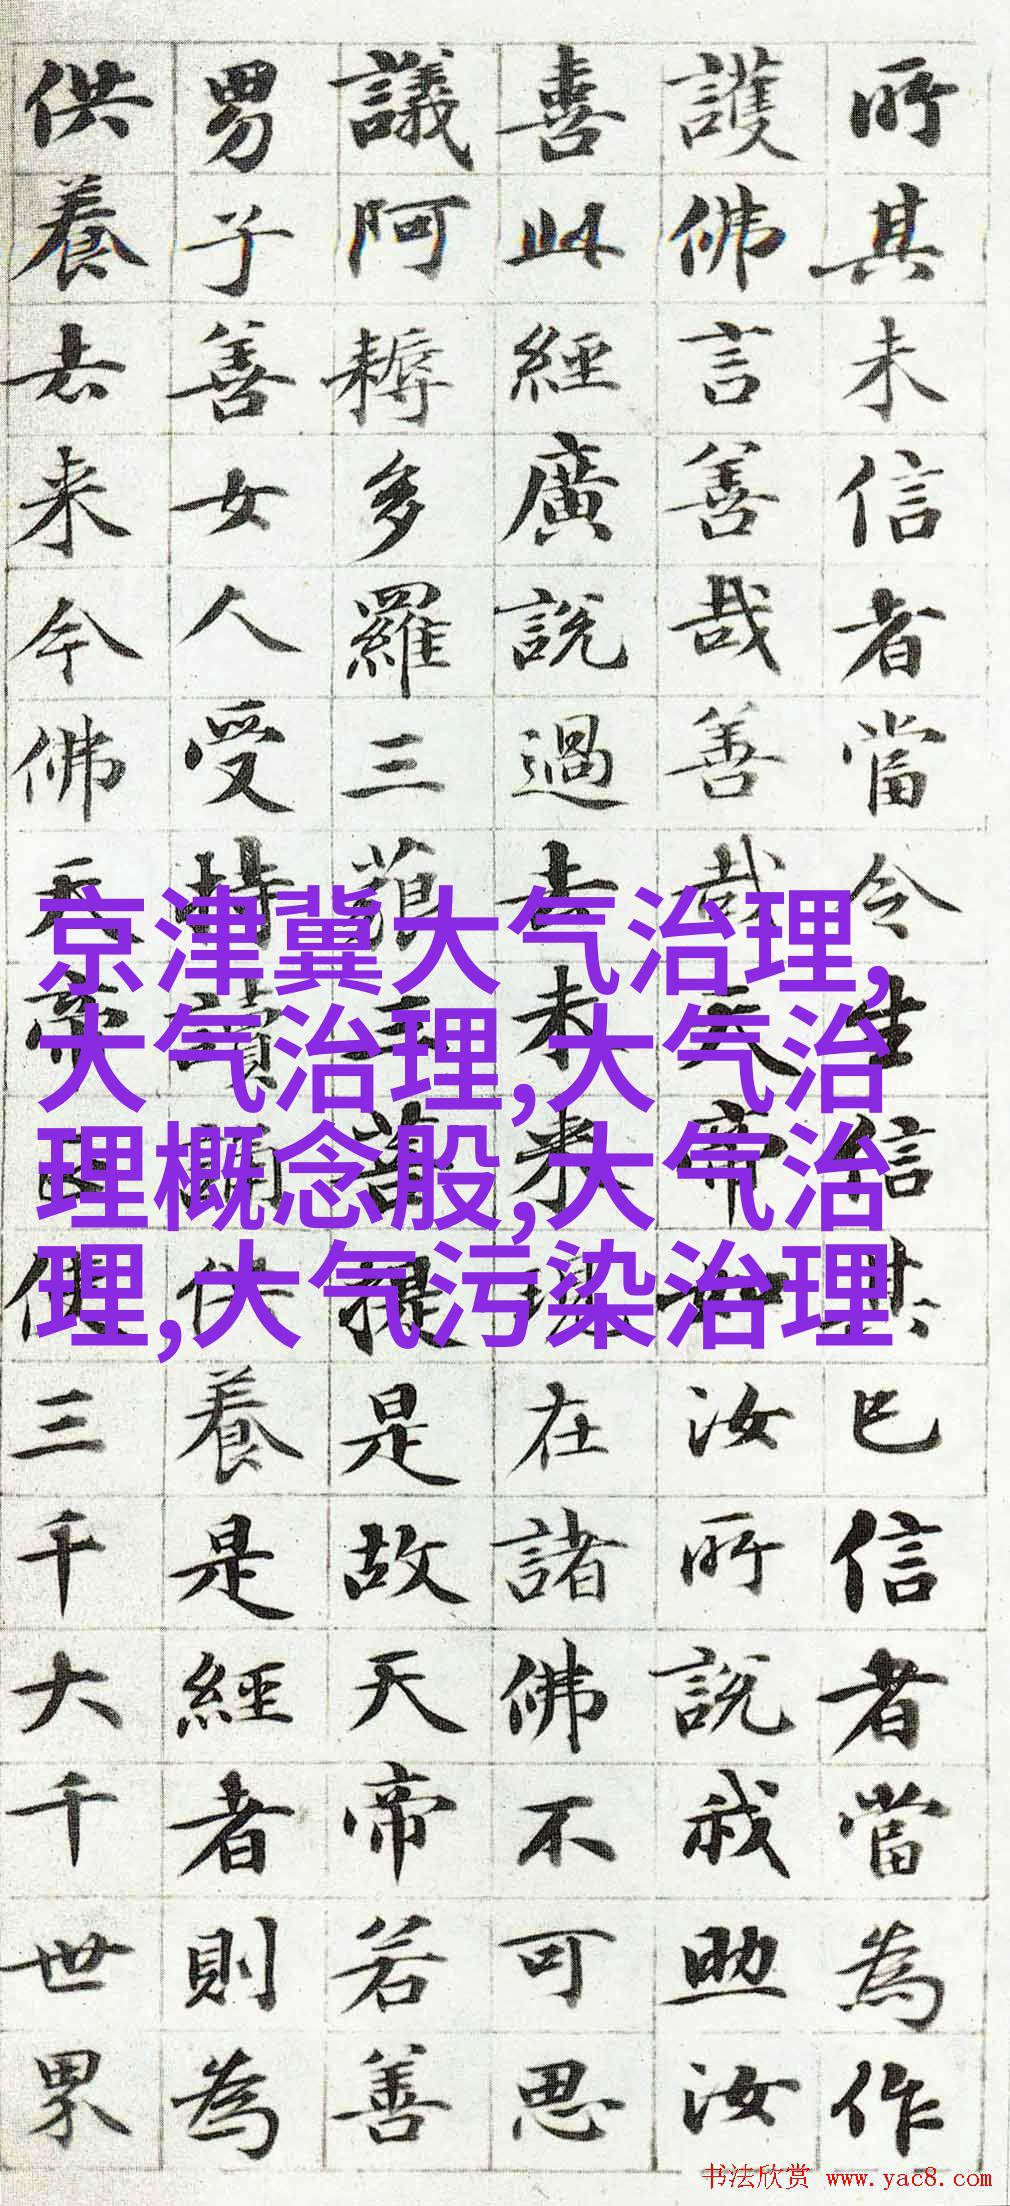 所其未信者當令生信其已信者當為作
護佛言善哉善哉天帝如汝所說我助汝
喜此經廣說過去未来現在諸佛不可思
議阿耨多羅三藐三菩提是故天帝若善
男子善女人受持讀誦供養是經者則為
供養去来今佛天帝正使三千大千世界
京津冀大气治理,
大气治理,大气治
理概念股,大气治
理,大气污染治理
书法欣赏 www.yac8.com